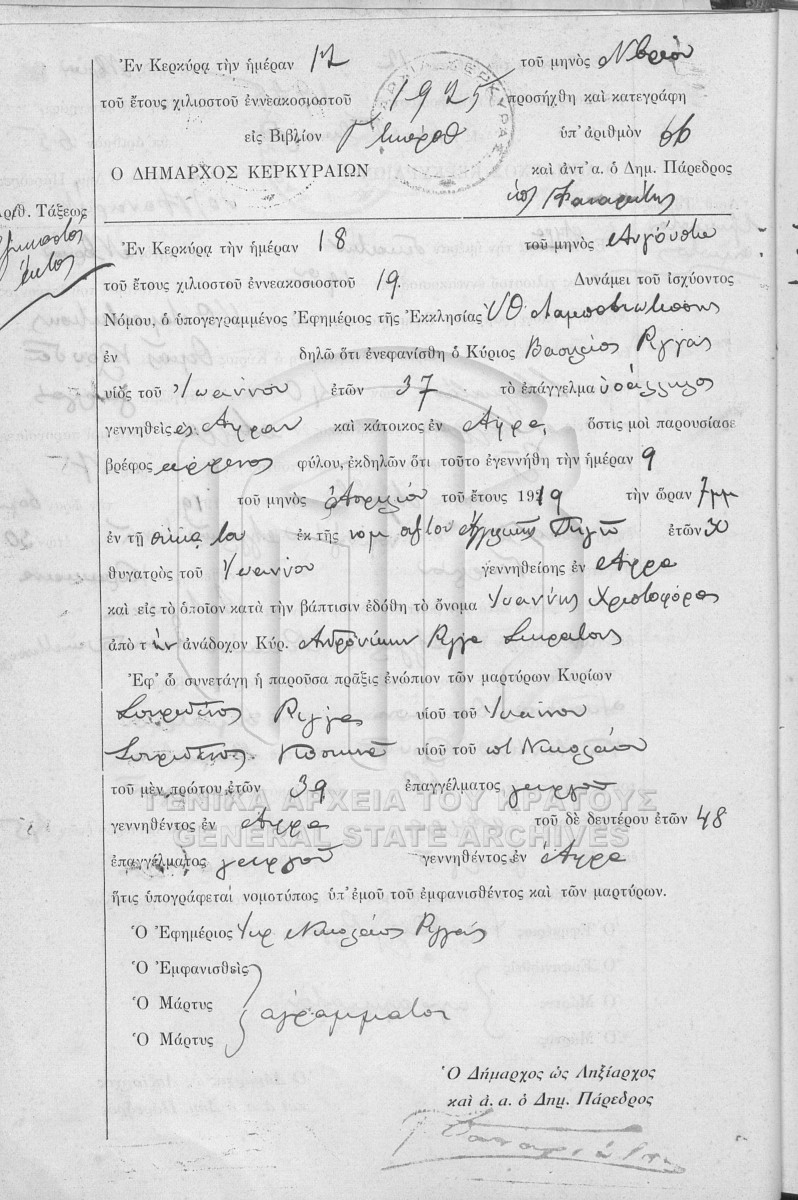 Ἐν Κερκύρᾳ τὴν ἡμέραν 12 τοῦ μηνὸς Νβρίου
τοῦ ἔτους χιλιοστοῦ ἐννεακοσιοστοῦ 1925 προσήχθη καὶ κατεγράφη
εἰς Βιβλίον ὑπ' ἀριθμὸν 66
Ο ΔΗΜΑΡΧΟΣ ΚΕΡΚΥΡΑΙΩΝ καὶ ἀντ' α. ὁ Δημ. Πάρεδρος
Ἀριθ. Τάξεως
ἕκτος
Ἐν Κερκύρᾳ τὴν ἡμέραν 18 τοῦ μηνὸς Αυγούστου
τοῦ ἔτους χιλιοστοῦ ἐννεακοσιοστοῦ 19. Δυνάμει τοῦ ἰσχύοντος
Νόμου, ὁ ὑπογεγραμμένος Ἐφημέριος τῆς Ἐκκλησίας ΥΘ
ἐν δηλῶ ὅτι ἐνεφανίσθη ὁ Κύριος Βασίλειος Ρίγγας
υἱὸς τοῦ Ιωάννου ἐτῶν 37 τὸ ἐπάγγελμα υπάλληλος
γεννηθεὶς καὶ κάτοικος ἐν ὅστις μοὶ παρουσίασε
βρέφος αρρενος φύλου, ἐκδηλῶν ὅτι τοῦτο ἐγεννήθη τὴν ἡμέραν 9
τοῦ μηνὸς Απριλίου τοῦ ἔτους 1919 τὴν ὥραν 7μμ
ἐν τῇ οικία του ἐκ τῆς νομ ἐτῶν 30
θυγατρὸς τοῦ Ιωάννου γεννηθείσης ἐν
καὶ εἰς τὸ ὁποῖον κατὰ τὴν βάπτισιν ἐδόθη τὸ ὄνομα Ιωάννης Χριστοφόρος
ἀπὸ τ ην ἀνάδοχον Κύρ. Ανδρονίκην Ρίγγα Σωκράτους
Ἐφ' ᾧ συνετάγη ἡ παροῦσα πρᾶξις ἐνώπιον τῶν μαρτύρων Κυρίων
Σπυρίδωνος Ρίγγας υἱοῦ τοῦ Ιωάννου
Σπυρίδωνος υἱοῦ τοῦ Νικολάου
τοῦ μὲν πρώτου ἐτῶν 39 ἐπαγγέλματος γεωργού
γεννηθέντος ἐν τοῦ δὲ δευτέρου ἐτῶν 48
ἐπαγγέλματος γεωργού γεννηθέντος ἐν
ἥτις ὑπογράφεται νομοτύπως ὑπ' ἐμοῦ τοῦ ἐμφανισθέντος καὶ τῶν μαρτύρων.
Ὁ Ἐφημέριος Νικόλαος Ρίγγας
Ὁ Ἐμφανισθεὶς
Ὁ Μάρτυς αγράμματοι
Ὁ Μάρτυς
Ὁ Δήμαρχος ὡς Ληξίαρχος
καὶ ἀ. α. ὁ Δημ. Πάρεδρος
ΓΕΝΙΚΑ ΑΡΧΕΙΑ ΤΟΥ ΚΡΑΤΟΥΣ
GENERAL STATE ARCHIVES